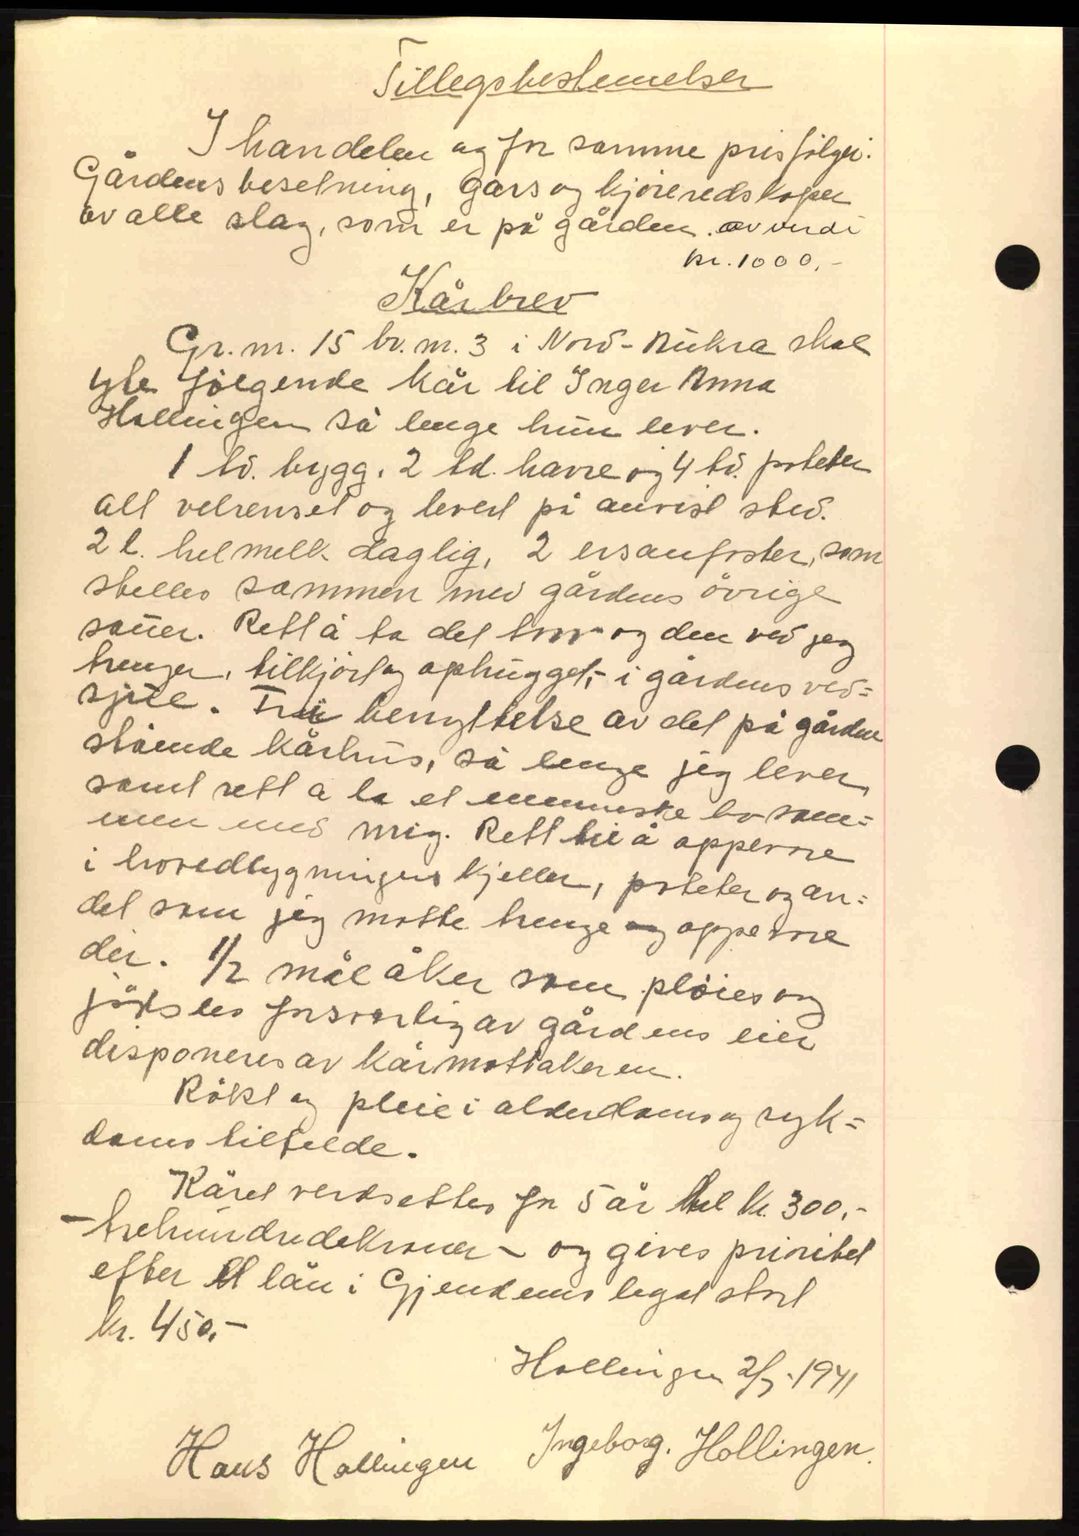 Tillegsbestemelser
I handelen og for samme pris følger:
Gårdens besetning, gårs og kjøreredskaper
av alle slag, som er på gården. av verdi
kr. 1000,-
Kårbrev
Gr. nr. 15 br. nr. 3 i Nord-Aukra skal
yte følgende kår til Inger Anna
Hollingen så lenge hun lever.
1 td. bygg, 2 td. havre og 4 td. poteter
alt velrenset og levert på anvist sted.
2 l. helmelk daglig, 2 ersaufoster, som
stelles sammen med gårdens övrige
sauer. Rett å ta det torv og den ved jeg
trenger, tilkjört og ophugget,- i gårdens ved=
sjåe. Fri benyttelse av det på gården
stående kårhus, så lenge jeg lever,
samt rett å la et menneske bo sam=
men med mig. Rett til å opperere
i hovedbygningens kjeller, poteter og an=
det som jeg måtte trenge og opperere
der. 1/2 mål åker som plöies og
jödsles forsvarlig av gårdens eier
disponeres av kårmottakeren.
Rökt og pleie i alderdoms og syk=
doms tilfelde.
Kåret verdsettes for 5 år til kr. 300,-
- trehundrede kroner - og gives prioritet
efter et lån i Gjendems legat stort
kr. 450,-
Hollingen 2/7-1941
Hans Hollingen Ingeborg. Hollingen.